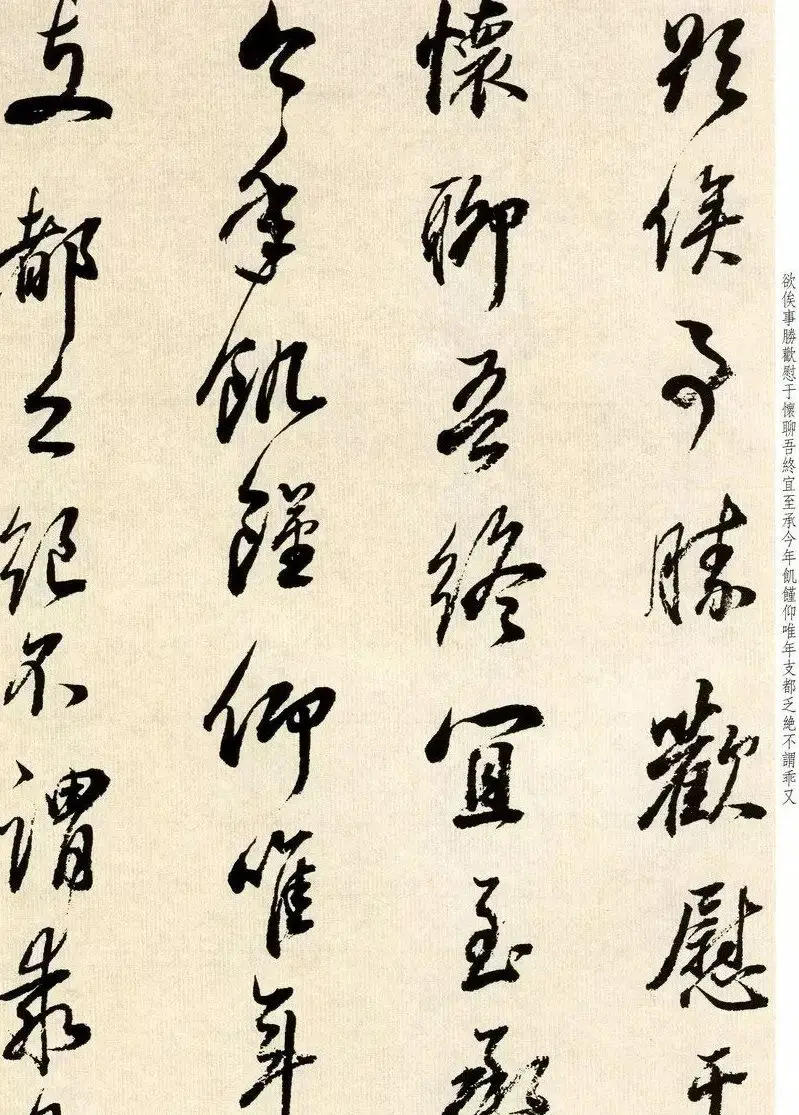 欲俟事勝歡慰于
懷聊吾終宜至承
今年飢饉仰唯年
支都乏絕不謂乖又
欲俟事勝歡慰于懷聊吾終宜至承今年飢饉仰唯年支都乏絶不謂乖又